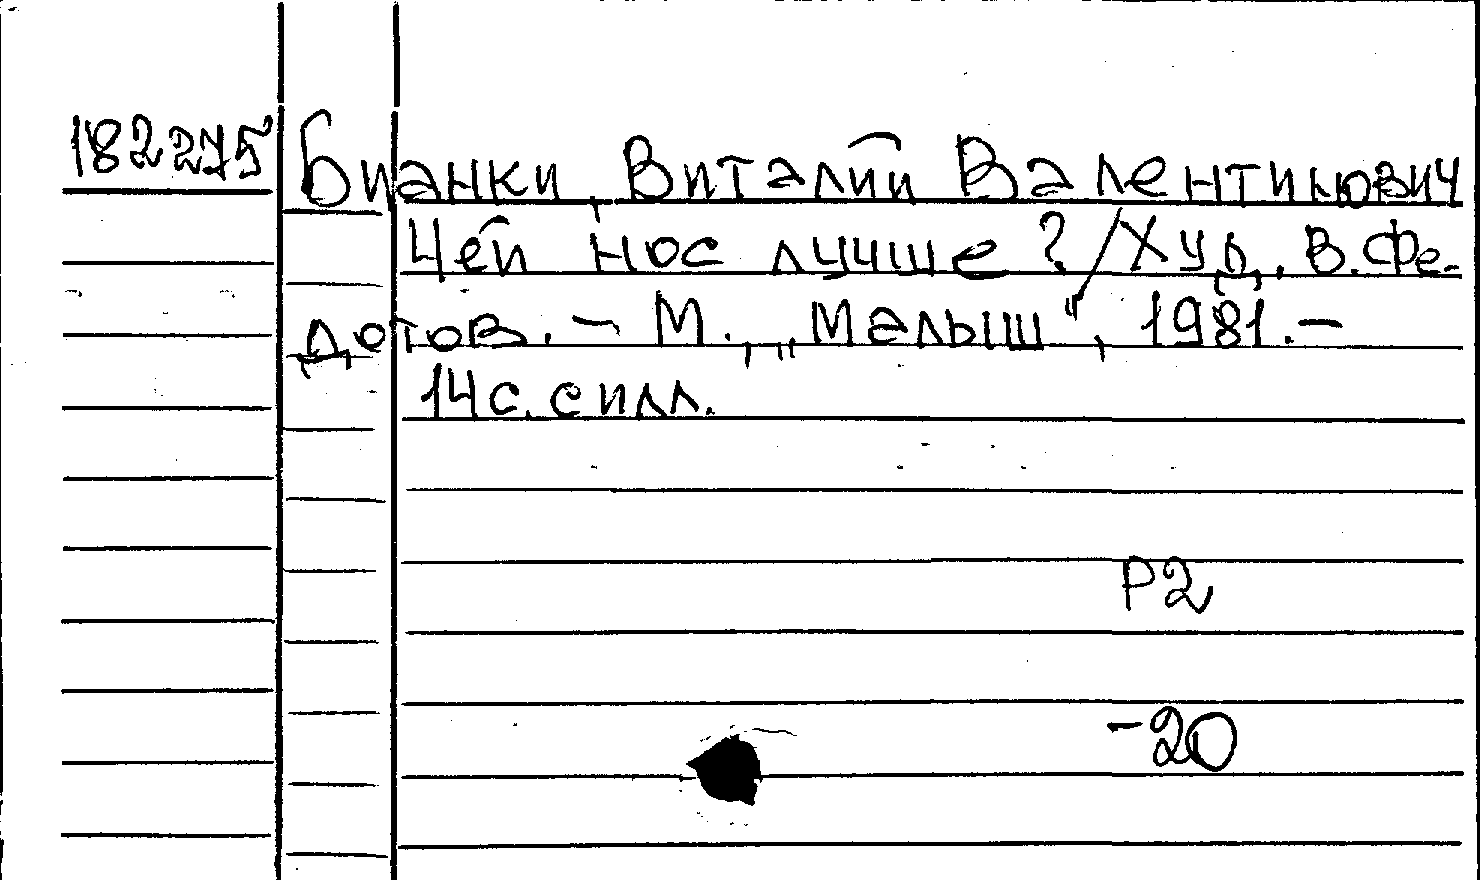 182275 Бианки, Виталий Валентинович
Чей нос лучше? / Худ. В. Фе-
дотов. – М., „Малыш", 1981. –
14 с. с илл.
Р2
-20